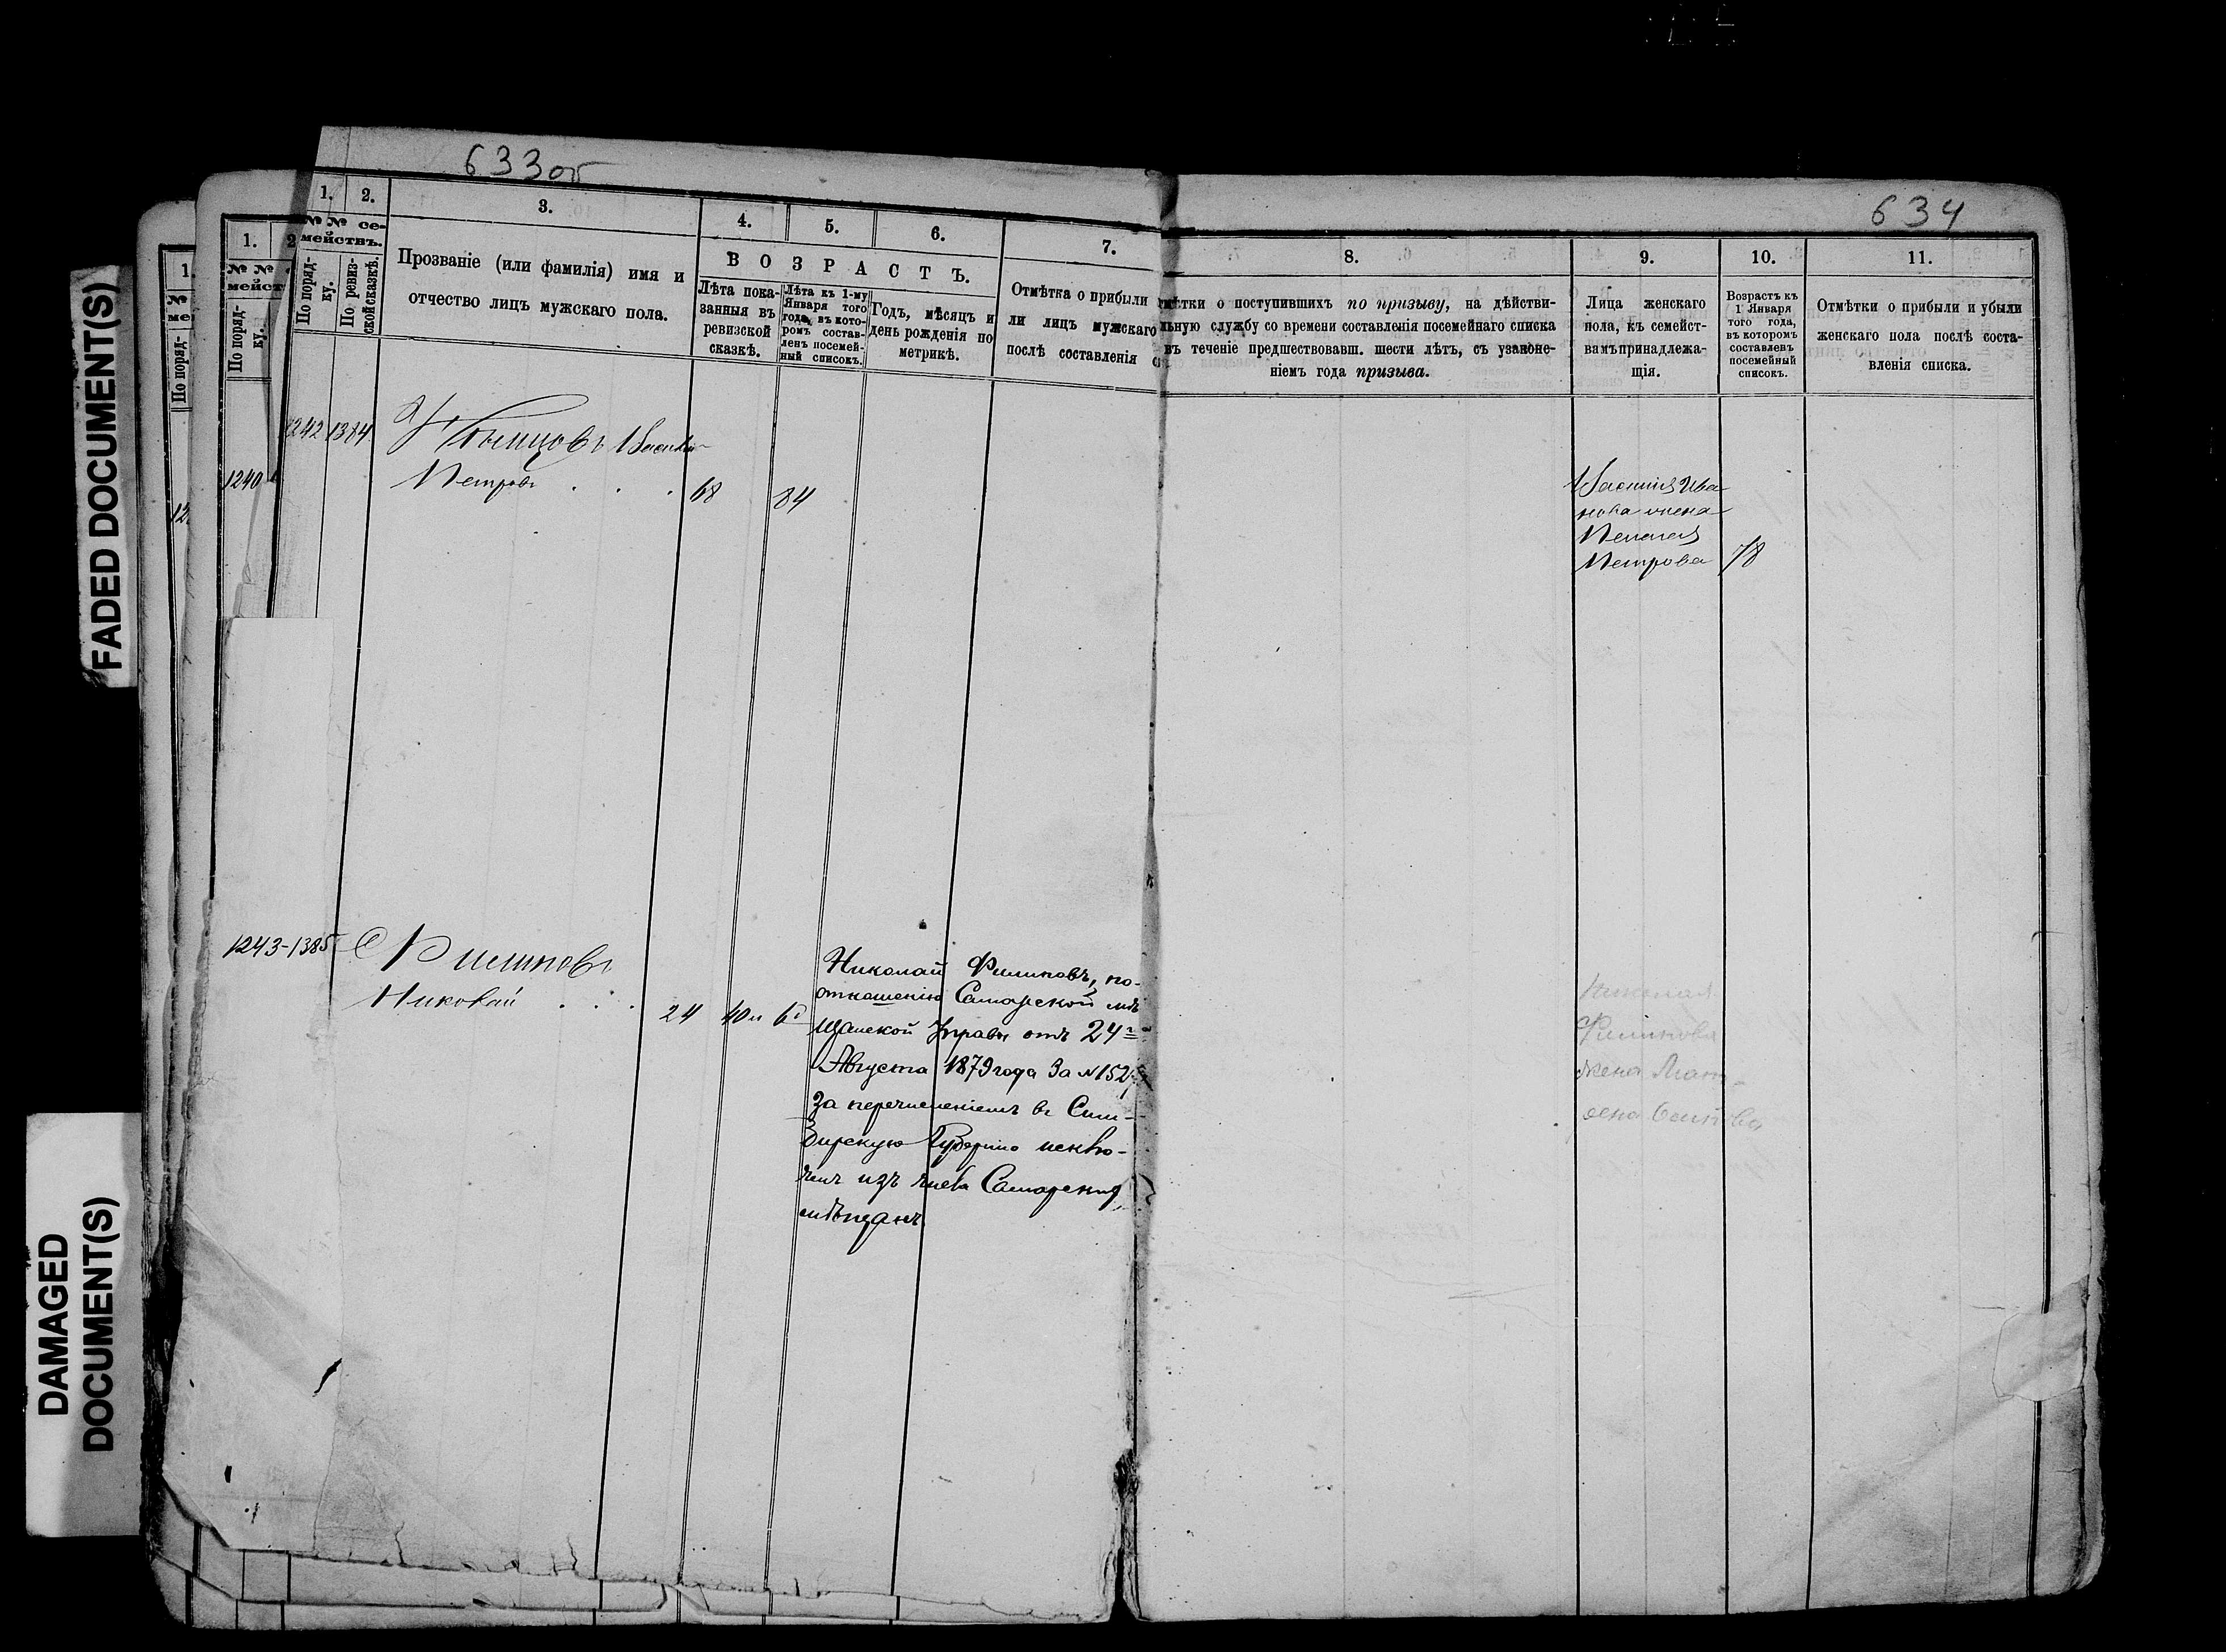 FADED DOCUMENT(S)
DAMAGED
DOCUMENT(S)
633об
634
1.
2.
3.
4.
5.
6.
7.
№ № се-
мействъ.
По поряд-
ку.
По ревиз-
ской сказкѣ.
Прозваніе (или фамилія) имя и
отчество лицъ мужскаго пола.
ВОЗРАСТЪ.
Лѣта пока-
занныя въ
ревизской
сказкѣ.
Лѣта къ 1-му
Января того
года, въ кото-
ромъ состав-
ленъ посемей-
ный списокъ.
Годъ, мѣсяцъ и
день рожденія по
метрикѣ.
Отмѣтка о прибыли
ли лицъ мужскаго
послѣ составленія
1.
№ №
мейст
По поряд-
ку.
1240
1.
№
ме
По поряд-
12
8.
9.
10.
11.
мѣтки о поступившихъ по призыву, на дѣйстви-
льную службу со времени составленія посемейнаго списка
въ теченіе предшествовавш. шести лѣтъ, съ узаконе-
ніемъ года призыва.
Лица женскаго
пола, къ семейст-
вамъ принадлежа-
щія.
Возрастъ къ
1 Января
того года,
въ которомъ
составленъ
посемейный
списокъ.
Отмѣтки о прибыли и убыли
женскаго пола послѣ соста-
вленія списка.
1242 1384
Василій
Петровъ . . . 68 84
Василія Ива
нова жена
Пелагея
Петрова 78
1243-1385 Филиповъ
Николай . . . 24 40
Николай Филиповъ, по-
отношенію Самарской мѣ
щанской Управы отъ 24го
Августа 1879 года за №
За перечисленіемъ въ Сим-
бирскую Губернію исклю-
ченъ изъ числа Самарскихъ
мѣщанъ
Николая
Филипова
жена